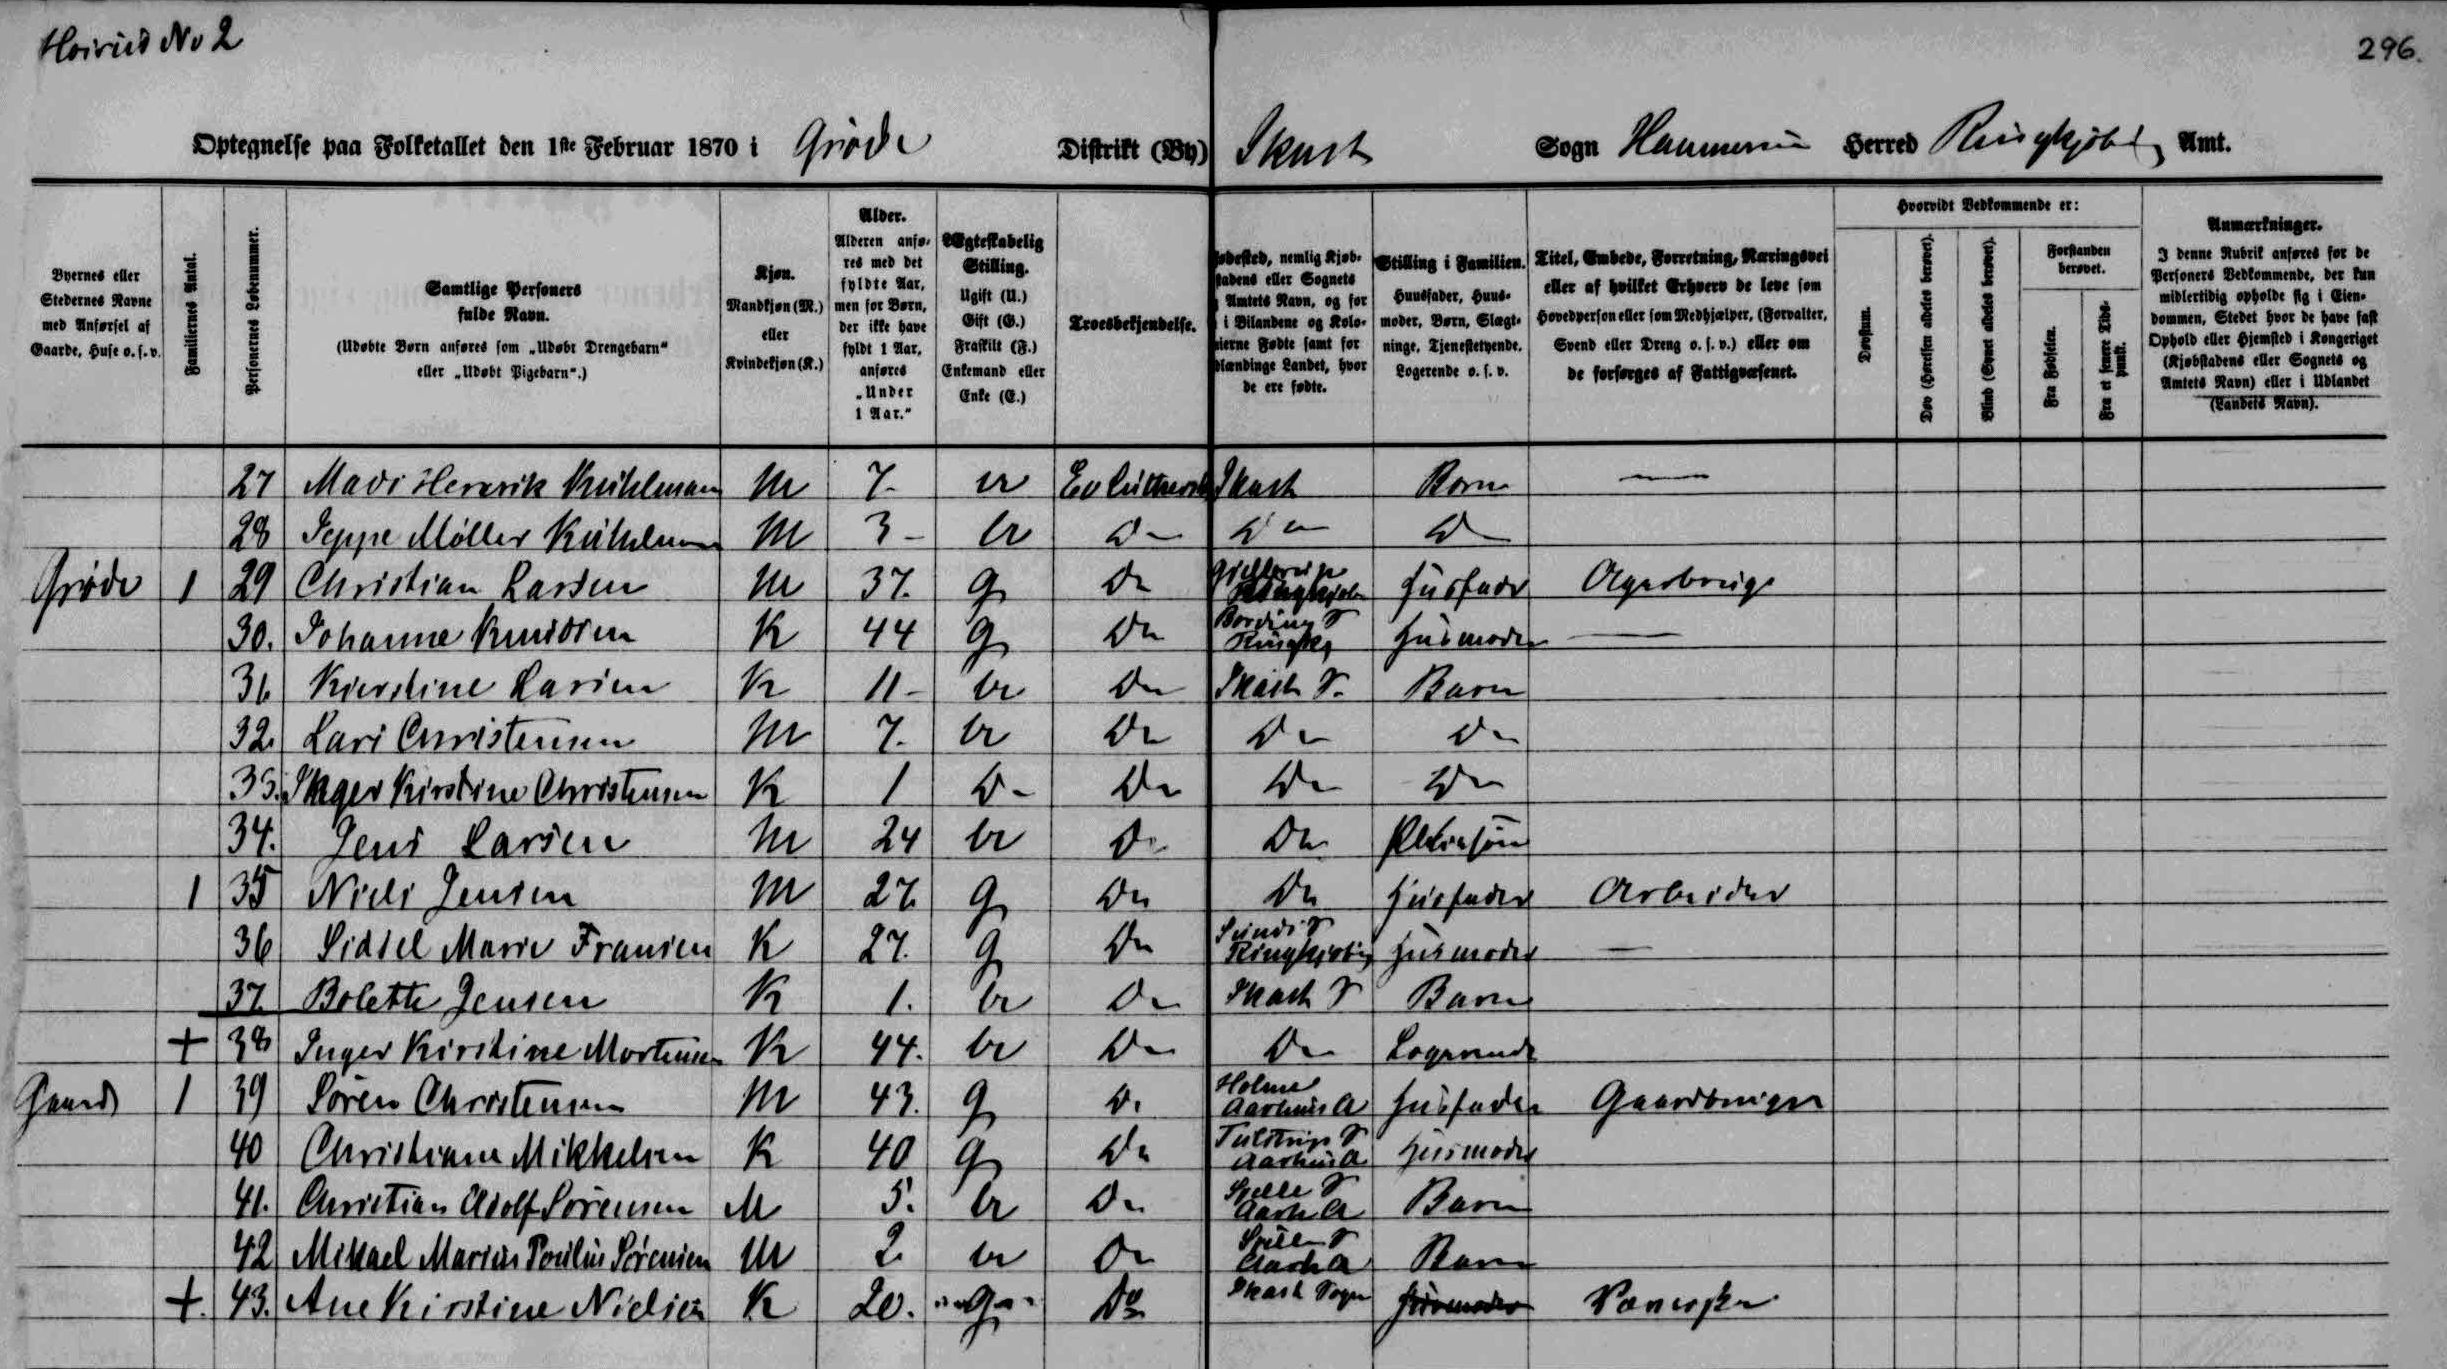 No 2
296.
Optegnelse paa Folketallet den 1ste Februar 1870 i Grøde Distrikt (By) Skast Sogn Hammerum Herred Ringkjøbing Amt.
Byernes eller Stedernes Navne med Anførsel af Gaarde, Huse o. s. v.
Familiernes Antal.
Personernes Løbenummer.
Samtlige Personers fulde Navn. (Udøbte Børn anføres som „Udøbt Drengebarn“ eller „Udøbt Pigebarn“.)
Kjøn. Mandkjøn (M.) eller Kvindekjøn (K.)
Alder. Alderen anføres med det fyldte Aar, men for Børn, der ikke have fyldt 1 Aar, anføres „Under 1 Aar.“
Ægteskabelig Stilling. Ugift (U.) Gift (G.) Fraskilt (F.) Enkemand eller Enke (E.)
Troesbekjendelse.
Fødested, nemlig Kjøbstadens eller Sognets Amtets Navn, og for i Bilandene og Kolonierne Fødte samt for Udlændinge Landet, hvor de ere fødte.
Stilling i Familien. Huusfader, Huusmoder, Børn, Slægtninge, Tjenestetyende, Logerende o. s. v.
Titel, Embede, Forretning, Næringsvei eller af hvilket Erhverv de leve som Hovedperson eller som Medhjælper, (Forvalter, Svend eller Dreng o. s. v.) eller om de forsørges af Fattigvæsenet.
Hvorvidt Vedkommende er:
Døvstum.
Døv (Hørelsen aldeles berøvet).
Blind (Synet aldeles berøvet).
Forstanden berøvet.
Fra Fødselen.
Fra et senere Tidspunkt.
Anmærkninger. I denne Rubrik anføres for de Personers Vedkommende, der kun midlertidig opholde sig i Eiendommen, Stedet hvor de have fast Ophold eller Hjemsted i Kongeriget (Kjøbstadens eller Sognets og Amtets Navn) eller i Udlandet (Landets Navn).
27 Mads Henrik Kühlmann M 7 U Ev Luthersk Skast Barn —
28 Jeppe Møller Kühlmann M 3 U Do Do Do
Grøde 1 29 Christian Larsen M 37. G Do Gjellerup Ringkjøb Husfader Agerbruge
30. Johanne Knudsen K 44 G Do Bording S Ringkj Husmoder —
31 Kirstine Larsen K 11 U Do Skast S. Barn
32. Lars Christensen M 7. U Do Do Do
33. Inger Kirstine Christensen K 1 Do Do Do Do
34. Jens Larsen M 24 U Do Do Pleiesøn
1 35 Niels Jensen M 27 G Do Do Husfader Arbeider
36 Sidsel Marie Fransen K 27. G Do Sunds S Ringkjøbing Husmoder —
37 Bolette Jensen K 1. U Do Skast S Barn
+ 38 Inger Kirstine Mortensen K 44. U Do Do Logerende
Gaard 1 39 Søren Christensen M 43. G Do Holme Aarhuus A Husfader Gaardbruger
40 Christiane Mikkelsen K 40 G Do Tulstrup S Aarhus A Husmoder
41. Christian Adolf Sørensen M 5. U Do S Aarh A Barn
42 Mikael Marius Poulus Sørensen M 2 U Do S Aarh A Barn
+. 43. Ane Kirstine Nielsen K 20. G Do Skast Sogn Husmoder